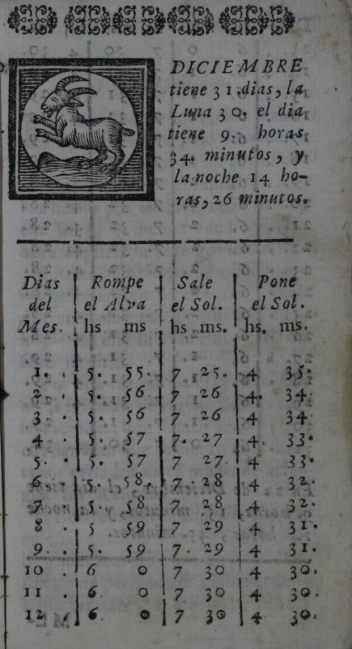 DICIEMBRE
tiene 31. dias, la
Luna 30. el dia
tiene 9. horas
34. minutos, y
la noche 14 ho-
ras, 26 minutos.
Dias Rompe Sale Pone
del el Alva el Sol. el Sol.
Mes. hs ms hs ms. hs. ms.
1. 5. 55. 7 25. 4 35.
2. 5. 56 7 26 4. 34.
3. 5. 56 7 26 4 34.
4. 5. 57 7. 27 4. 33.
5. 5. 57 7 27. 4 33.
6. 5. 58. 7. 28 4 32.
7 5. 58 7 28 4 32.
8. 5 59 7 29 4 31.
9. 5. 59 7. 29 4 31.
10 . 6 0 7 30 4 30.
11 . 6. 0 7 30 4 30.
12 . 6. 0 7 30 4 30.